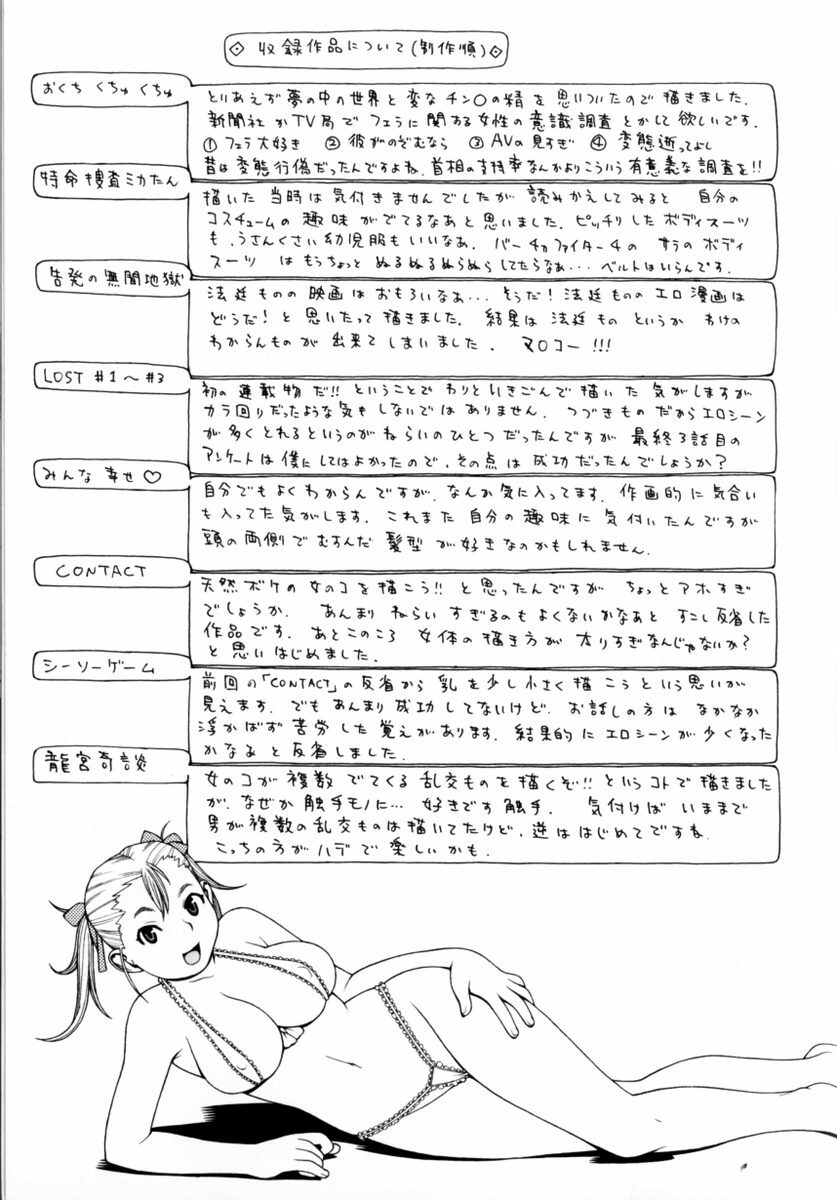 収録作品について(制作順)
おくち くちゅ くちゅ
とりあえず夢の中の世界と変なチン〇の精を思いついたので描きました.
新聞社かTV局でフェラに関する女性の意識調査とかして欲しいです.
①フェラ大好き ②彼がのぞむなら ③AVの見すぎ ④変態逝ってよし
昔は変態行偽だったんですよね.首相の支持率なんかよりこういう有意義な調査を!!
特命捜査ミカたん
描いた当時は気付きませんでしたが 読みかえしてみると 自分の
コスチュームの趣味がでてるなあと思いました.ピッチリしたボディスーツ
も.うさんくさい幼児服もいいなあ. バーチョファイター4の サラのボディ
スーツ はもうちょっと ぬるぬるぬらぬらしてたらなぁ… ベルトはいらんです.
告発の無間地獄
法廷ものの映画はおもろいなあ… そうだ!法廷もののエロ漫画は
どうだ!と思いたって描きました. 結果は法廷ものというか わけの
わからんものが出来てしまいました. ヌロコー!!!
LOST #1〜#3
初の連載物だ!!ということでわりといきごんで描いた気がしますが
カラ回りだったような気もしないではありません. つづきものだからエロシーン
が多くとれるというのがねらいのひとつだったんですが 最終3話目の
アンケートは僕にしてはよかったので,その点は成功だったんでしょうか?
みんな幸せ♡
自分でもよくわからんですが,なんか気に入ってます. 作画的に気合い
も入ってた気がします. これまた自分の趣味に気付いたんですが
頭の両側でむすんだ髪型が好きなのかもしれません.
CONTACT
天然ボケの女のコを描こう!!と思ったんですが ちょっとアホすぎ
でしょうか. あんまりねらいすぎるのもよくないかなあと すこし反省した
作品です. あとこのころ 女体の描き方が太りすぎなんじゃないか?
と思いはじめました.
シーソーゲーム
前回の「CONTACT」の反省から乳を少し小さく描こうという思いが
見えます. でもあんまり成功してないけど. お話しの方はなかなか
浮かばず苦労した覚えがあります. 結果的にエロシーンが少くなった
かなあと反省しました.
龍宮奇談
女のコが複数でてくる乱交ものを描くぞ!!というコトで描きました
が.なぜか触手モノに… 好きです触手. 気付けばいままで
男が複数の乱交ものは描いてたけど,逆ははじめてですね.
こっちの方がハデで楽しいかも.